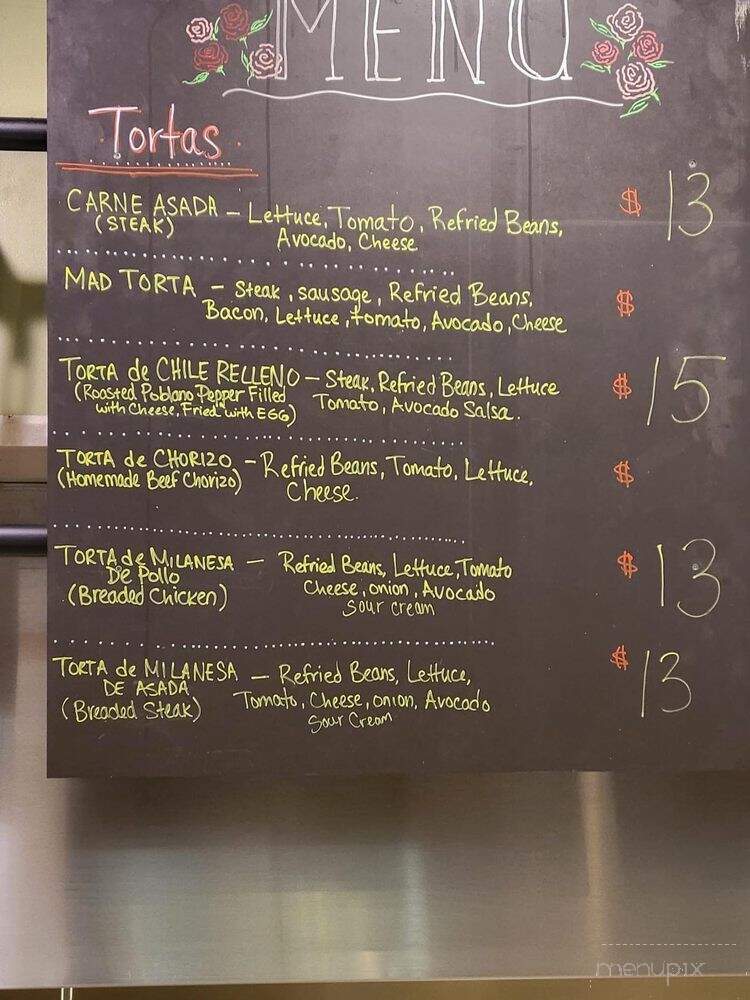 MENU
Tortas
CARNE ASADA - Lettuce, Tomato, Refried Beans, $ 13
(STEAK) Avocado, Cheese
MAD TORTA - Steak, sausage, Refried Beans, $
Bacon, Lettuce, tomato, Avocado, Cheese
TORTA de CHILE RELLENO - Steak, Refried Beans, Lettuce $ 15
(Roasted Poblano Pepper Filled Tomato, Avocado Salsa.
with Cheese, Fried with EGG)
TORTA de CHORIZO - Refried Beans, Tomato, Lettuce, $
(Homemade Beef Chorizo) Cheese.
TORTA de MILANESA - Refried Beans, Lettuce, Tomato $ 13
De Pollo Cheese, onion, Avocado
(Breaded Chicken) Sour cream
TORTA de MILANESA - Refried Beans, Lettuce, $ 13
DE ASADA Tomato, Cheese, onion, Avocado
(Breaded Steak) Sour Cream
menupix